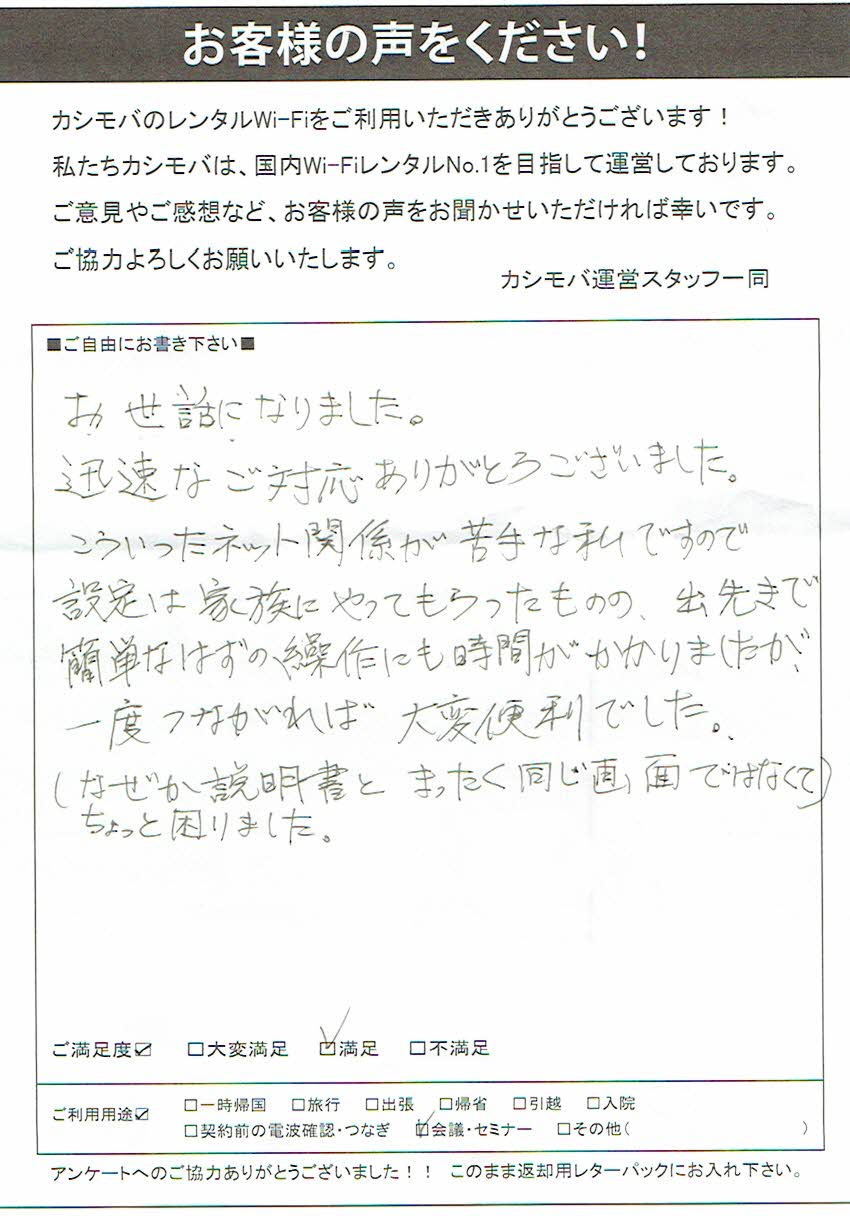 お客様の声をください！
カシモバのレンタルWi-Fiをご利用いただきありがとうございます！
私たちカシモバは、国内Wi-FiレンタルNo.1を目指して運営しております。
ご意見やご感想など、お客様の声をお聞かせいただければ幸いです。
ご協力よろしくお願いいたします。
カシモバ運営スタッフ一同
■ご自由にお書き下さい■
お世話になりました。
迅速なご対応ありがとうございました。
こういったネット関係が苦手な私ですので
設定は家族にやってもらったものの、出先きで
簡単なはずの操作にも時間がかかりましたが、
一度つながれば大変便利でした。
(なぜか説明書とまったく同じ画面ではなくて)
ちょっと困りました。
ご満足度☑ □大変満足 ☑満足 □不満足
ご利用用途☑ □一時帰国 □旅行 □出張 □帰省 □引越 □入院
□契約前の電波確認・つなぎ ☑会議・セミナー □その他( )
アンケートへのご協力ありがとうございました！！ このまま返却用レターパックにお入れ下さい。